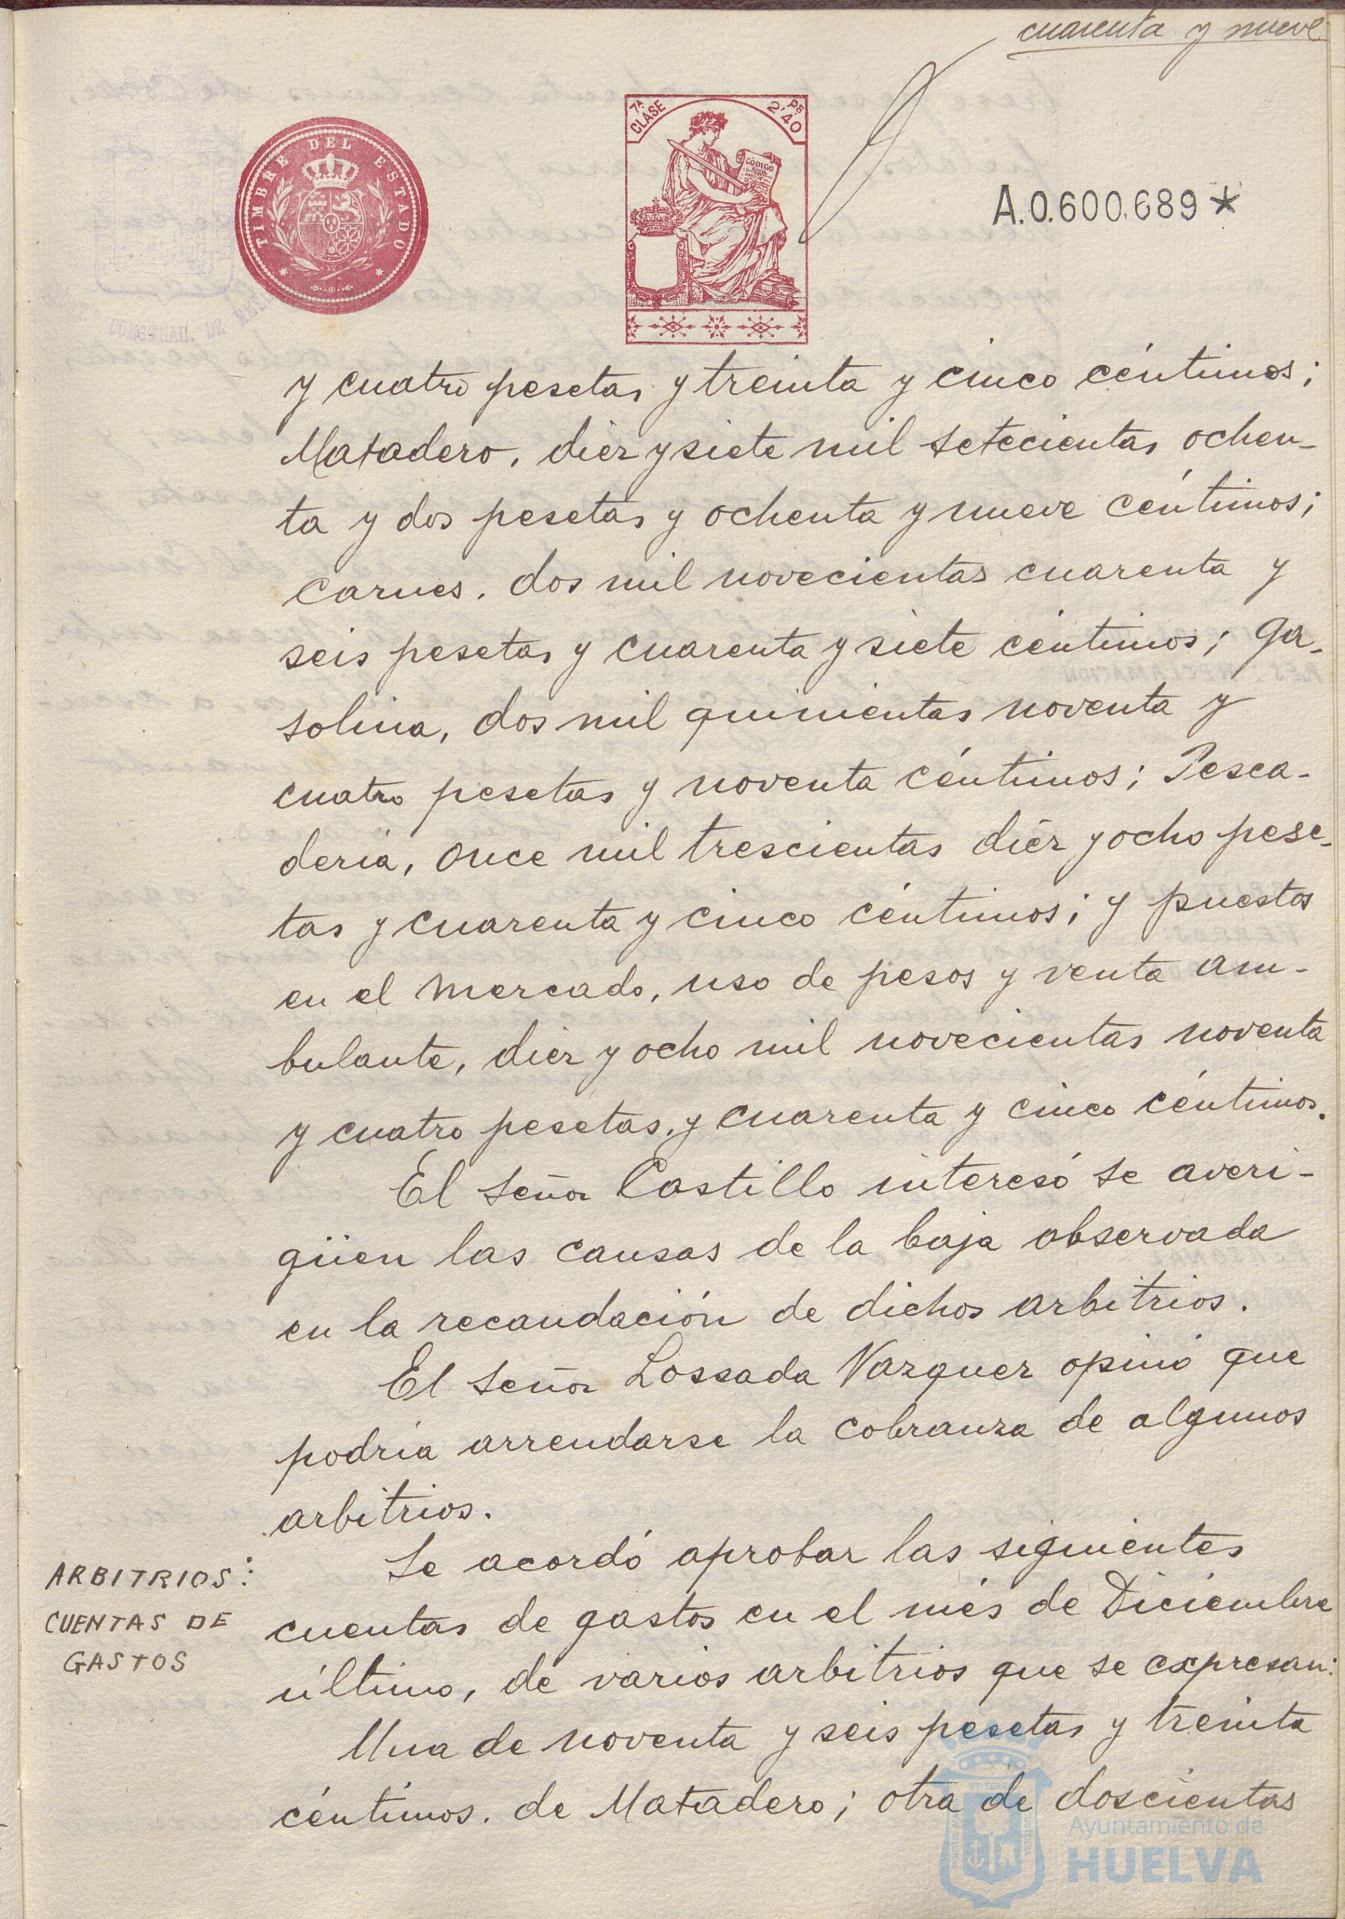 cuarenta y nueve
TIMBRE DEL ESTADO
7ª CLASE
2'40 Ps
CÓDIGO
A.0.600.689*
y cuatro pesetas y treinta y cinco céntimos;
Matadero, diez y siete mil setecientas ochen-
ta y dos pesetas y ochenta y nueve céntimos;
carnes, dos mil novecientas cuarenta y
seis pesetas y cuarenta y siete céntimos; ga-
solina, dos mil quinientas noventa y
cuatro pesetas y noventa céntimos; Pesca-
dería, once mil trescientas diez y ocho pese-
tas y cuarenta y cinco céntimos; y puestos
en el mercado, uso de pesos y venta am-
bulante, diez y ocho mil novecientas noventa
y cuatro pesetas y cuarenta y cinco céntimos.
El señor Castillo interesó se averi-
güen las causas de la baja observada
en la recaudación de dichos arbitrios.
El señor Lossada Vazquez opinó que
podría arrendarse la cobranza de algunos
arbitrios.
ARBITRIOS:
CUENTAS DE
GASTOS
Se acordó aprobar las siguientes
cuentas de gastos en el més de Diciembre
último, de varios arbitrios que se expresan:
Una de noventa y seis pesetas y treinta
céntimos, de Matadero; otra de doscientas
Ayuntamiento de
HUELVA